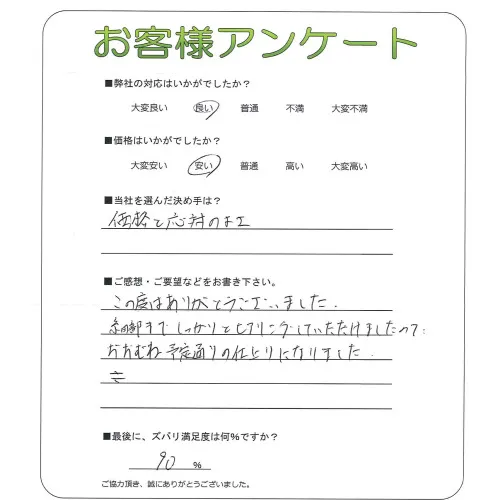 お客様アンケート
■弊社の対応はいかがでしたか？
大変良い 良い 普通 不満 大変不満
■価格はいかがでしたか？
大変安い 安い 普通 高い 大変高い
■当社を選んだ決め手は？
価格と応対のよさ
■ご感想・ご要望などをお書き下さい。
この度はありがとうございました.
細部まで しっかりとヒアリングしていただけましたので、
おおむね 予定通りの仕上りになりました.
■最後に、ズバリ満足度は何％ですか？
90 %
ご協力頂き、誠にありがとうございました。